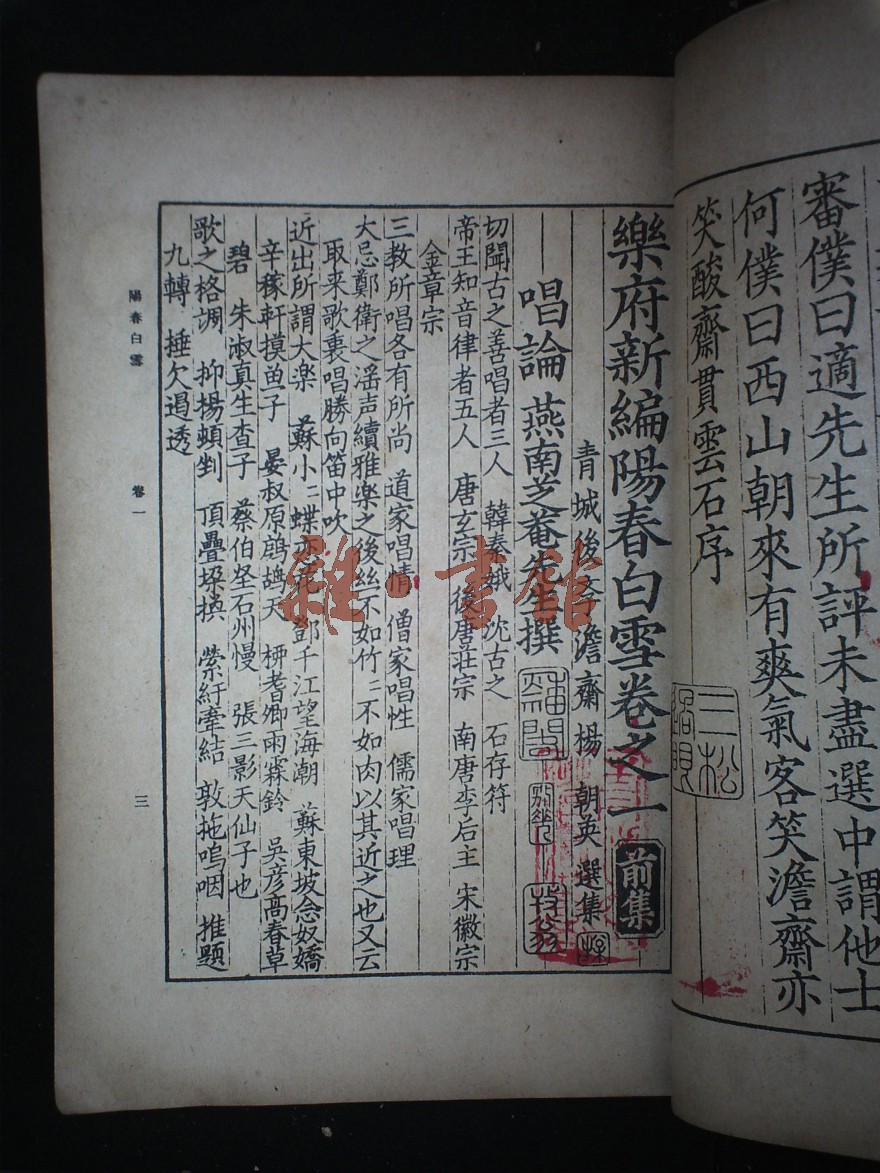 審僕曰適先生所評未盡選中謂他士
何僕曰西山朝來有爽氣客笑澹齋亦
笑酸齋貫雲石序
三松
樂府新編陽春白雪卷之一 前集
青城後學澹齋楊朝英選集
唱論 燕南芝菴先生撰
切聞古之善唱者三人 韓秦娥 沈古之 石存符
帝王知音律者五人 唐玄宗 後唐莊宗 南唐李后主 宋徽宗
金章宗
三教所唱各有所尚 道家唱情 僧家唱性 儒家唱理
大忌鄭衛之滛声續雅楽之後絲不如竹〻不如肉以其近之也又云
取来歌裏唱勝向笛中吹
近出所謂大楽 蘇小〻蝶恋花 鄧千江望海潮 蘇東坡念奴嬌
辛稼軒摸鱼子 晏叔原鷓鴣天 柳耆卿雨霖鈴 吳彦髙春草
碧 朱淑真生查子 蔡伯坚石州慢 張三影天仙子也
歌之格調 抑揚頓剉 頂疊垜換 縈紆牽結 敦拖嗚咽 推題
九轉 捶欠遏透
陽春白雪 卷一 三
雜·書館